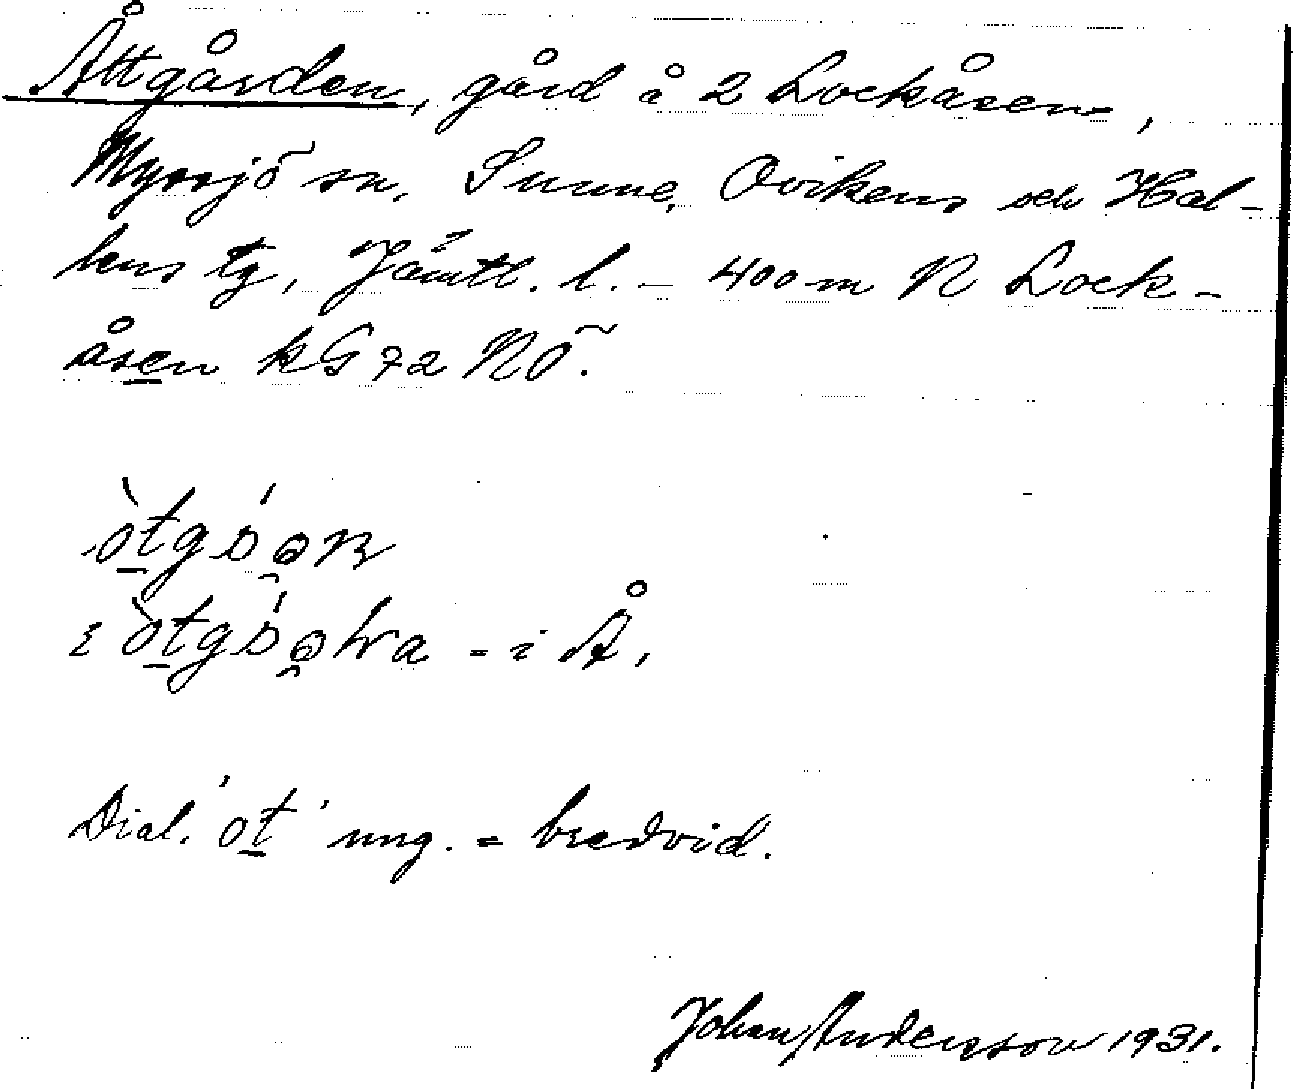 Åttgården, gård å 2 Lockåsen,
Myssjö sn, Sunne, Ovikens och Hal-
lens tg, Jämtl. l. – 400 m N Lock-
åsen kG 72 NÖ.
i - i Å.
Dial. 'ot' ung. = bredvid.
Johan Andersson 1931.